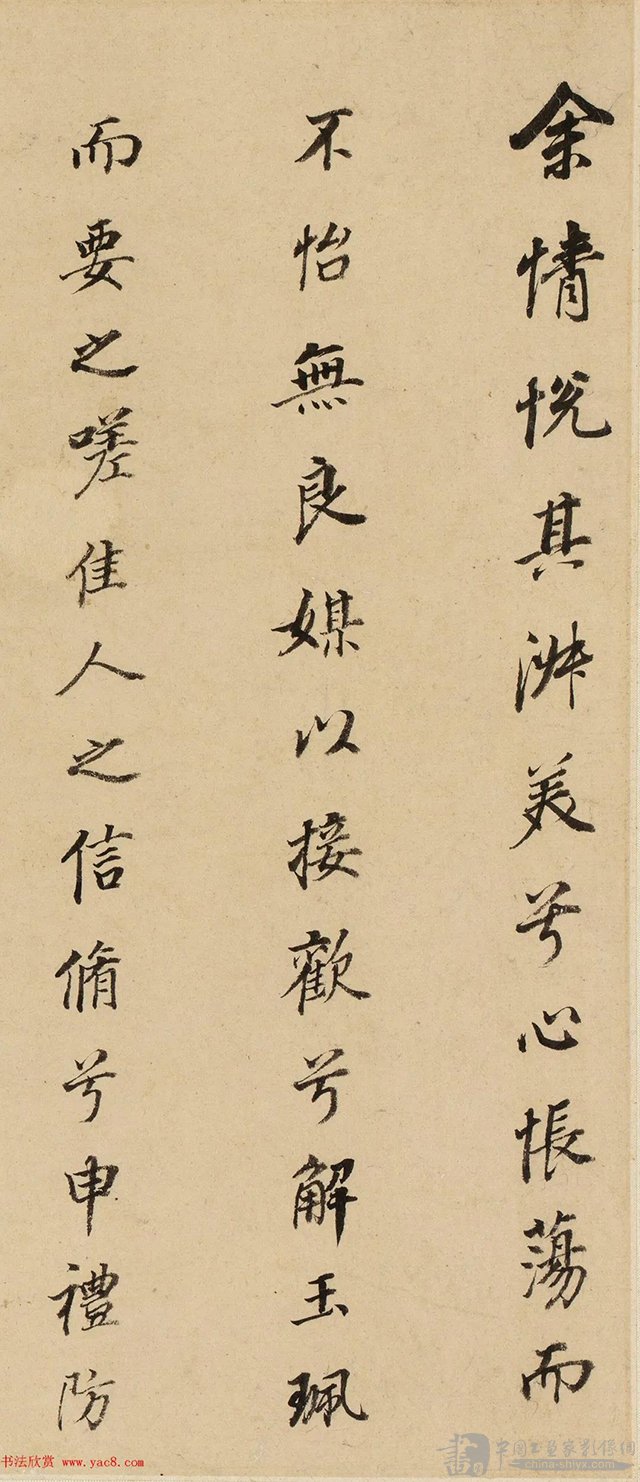 余情悦其淑美兮心悵蕩而
不怡無良媒以接歡兮解玉珮
而要之嗟佳人之信脩兮申禮防
书法欣赏 www.yac8.com
china-shiyx.com